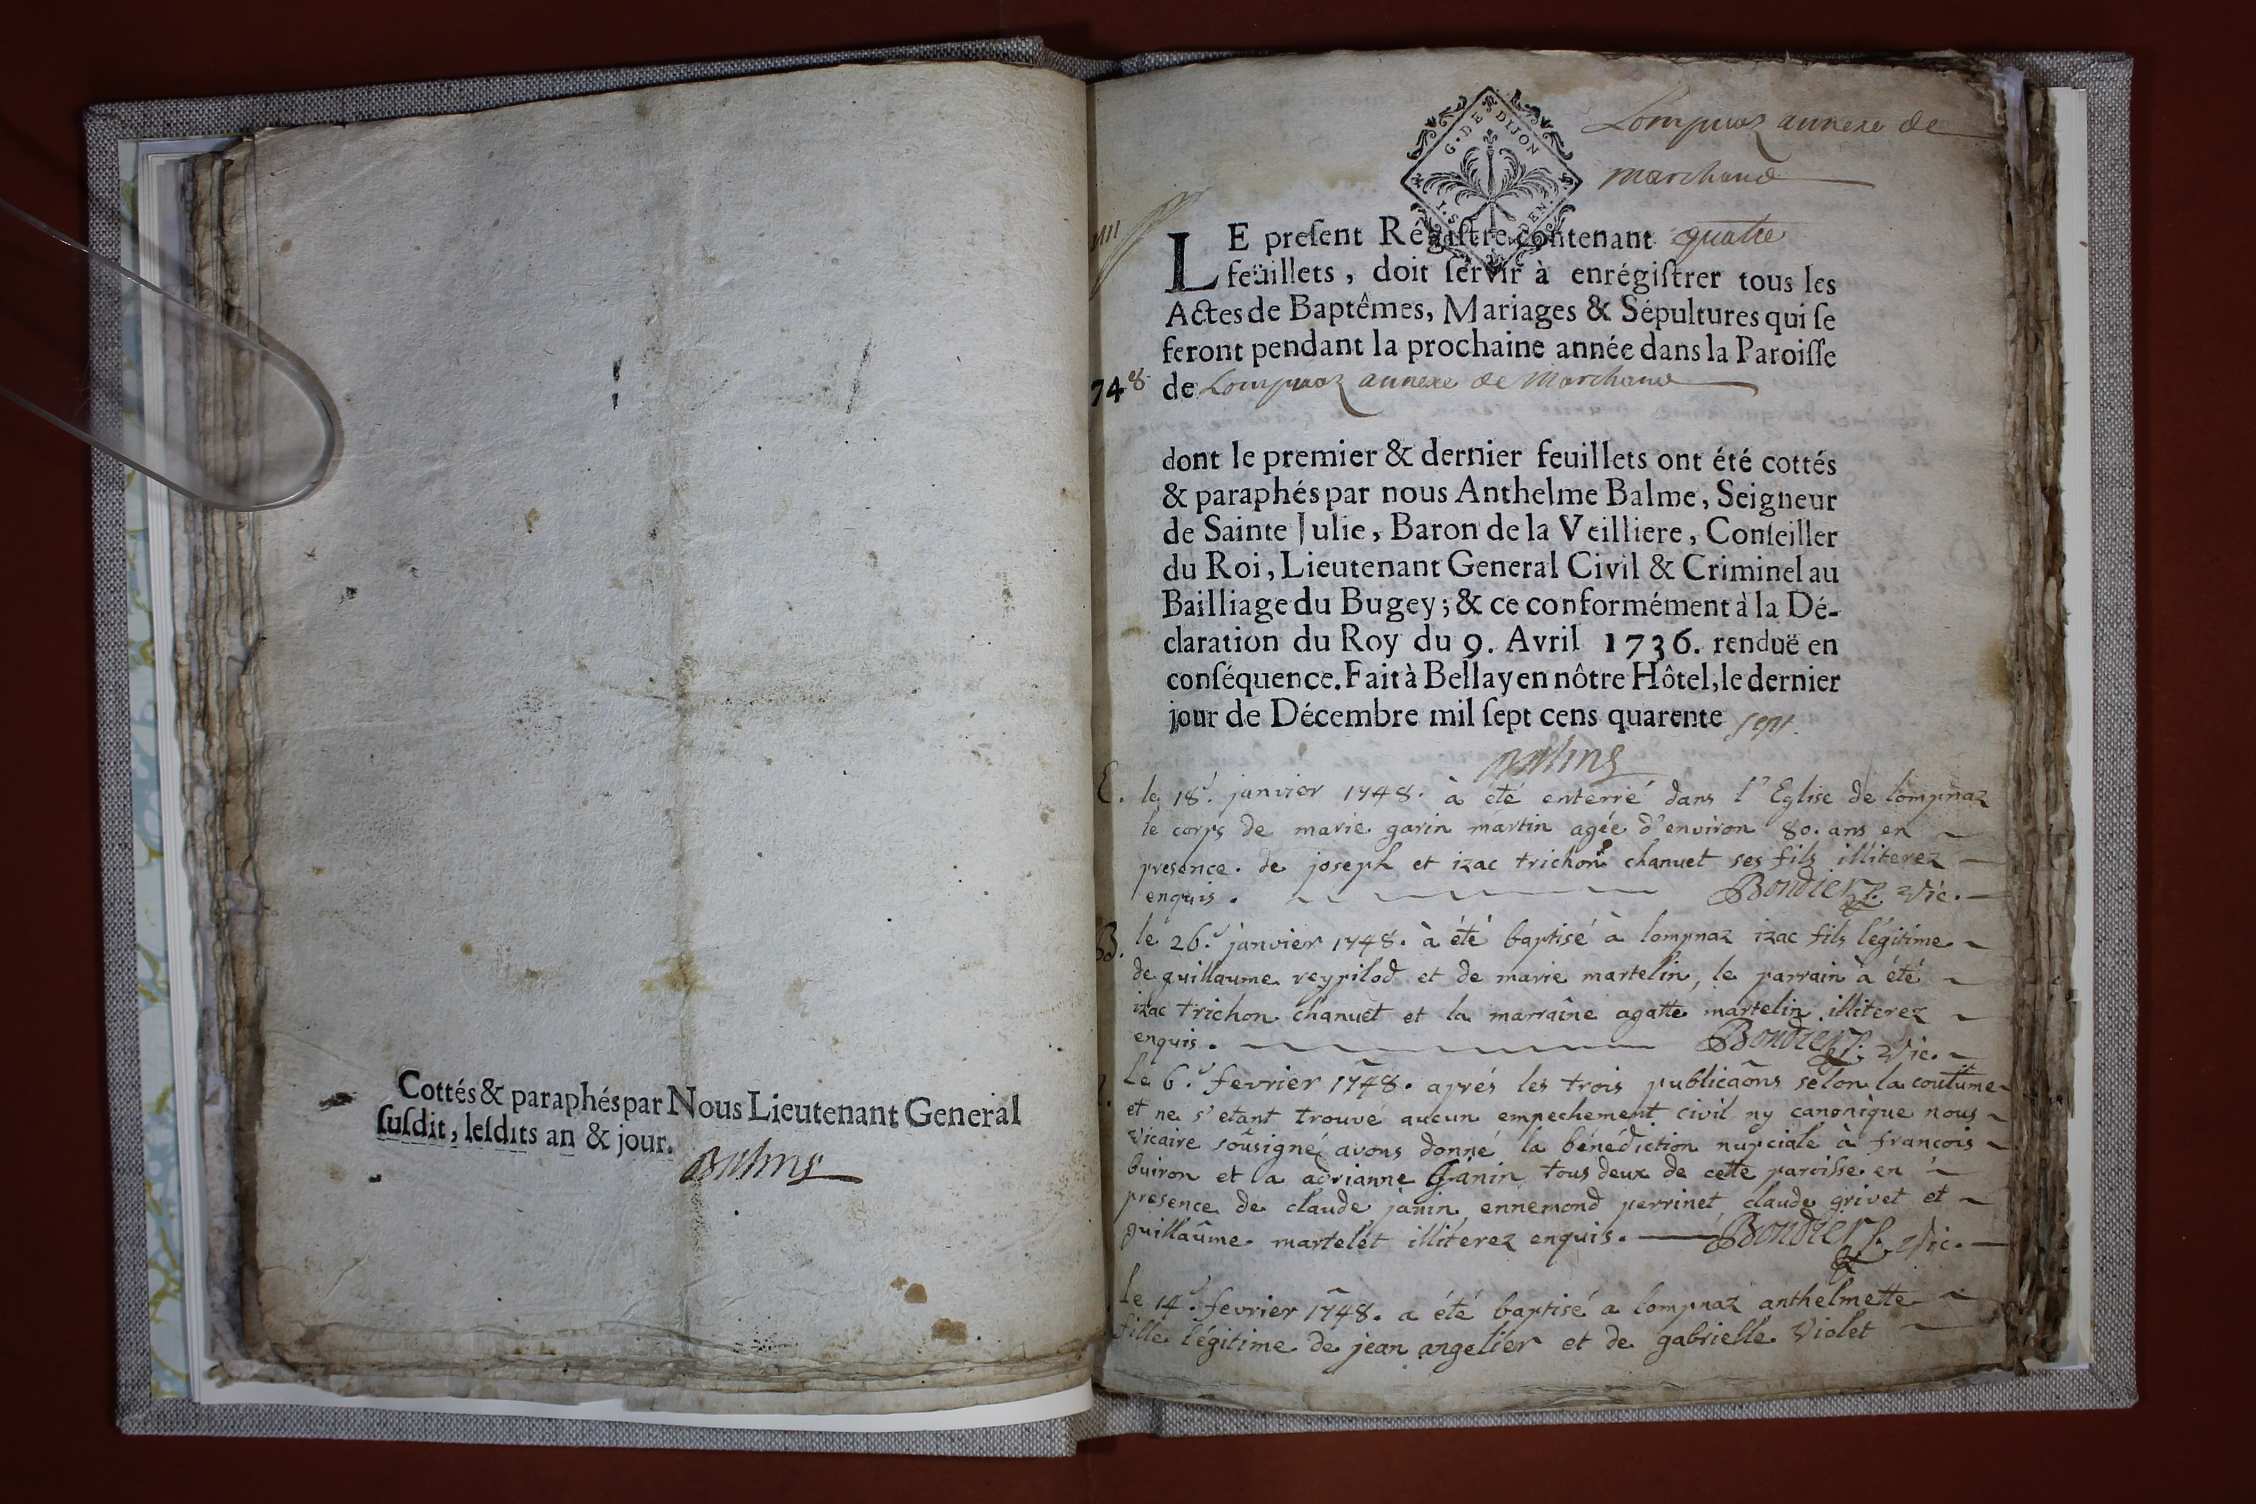 Cottés & paraphés par Nous Lieutenant General
ſuſdit, leſdits an & jour.
G. DE DIJON
Lompnaz annexe de
marchand
LE preſent Régiſtre contenant quatre
feüillets, doit ſervir à enrégiſtrer tous les
Actes de Baptêmes, Mariages & Sépultures qui ſe
feront pendant la prochaine année dans la Paroiſſe
748 de Lompnaz annexe de Marchand
dont le premier & dernier feuillets ont été cottés
& paraphés par nous Anthelme Balme, Seigneur
de Sainte Julie, Baron de la Veilliere, Conſeiller
du Roi, Lieutenant General Civil & Criminel au
Bailliage du Bugey; & ce conformément à la Dé-
claration du Roy du 9. Avril 1736. renduë en
conſéquence. Fait à Bellay en nôtre Hôtel, le dernier
jour de Décembre mil ſept cens quarente sept.
E. le 18.e janvier 1748. à été enterré dans l'Eglise de lompnaz
le corps de marie garin martin agée d'environ 80. ans en
presence de joseph et izac trichon chanuet ses fils illiterez
enquis. Bondier p. vic.
B. le 26.e janvier 1748. à été baptisé à lompnaz izac fils légitime
de guillaume reypilod et de marie martelin, le parrain à été
izac trichon chanuet et la marraine agatte martelin illiterez
enquis. Bondier p. vic.
Le 6.e fevrier 1748. aprés les trois publicaõns selon la coutume
et ne s'etant trouvé aucun empechement civil ny canonique nous
vicaire sousigné avons donné la bénédiction nupciale à francois
buiron et la adrianne Janin tous deux de cette paroisse en
presence de claude janin ennemond perrinet claude grivet et
guillaûme martelet illiterez enquis. Bondier p. vic.
Le 14.e fevrier 1748. a été baptisé a lompnaz anthelmette
fille légitime de jean angelier et de gabrielle Violet